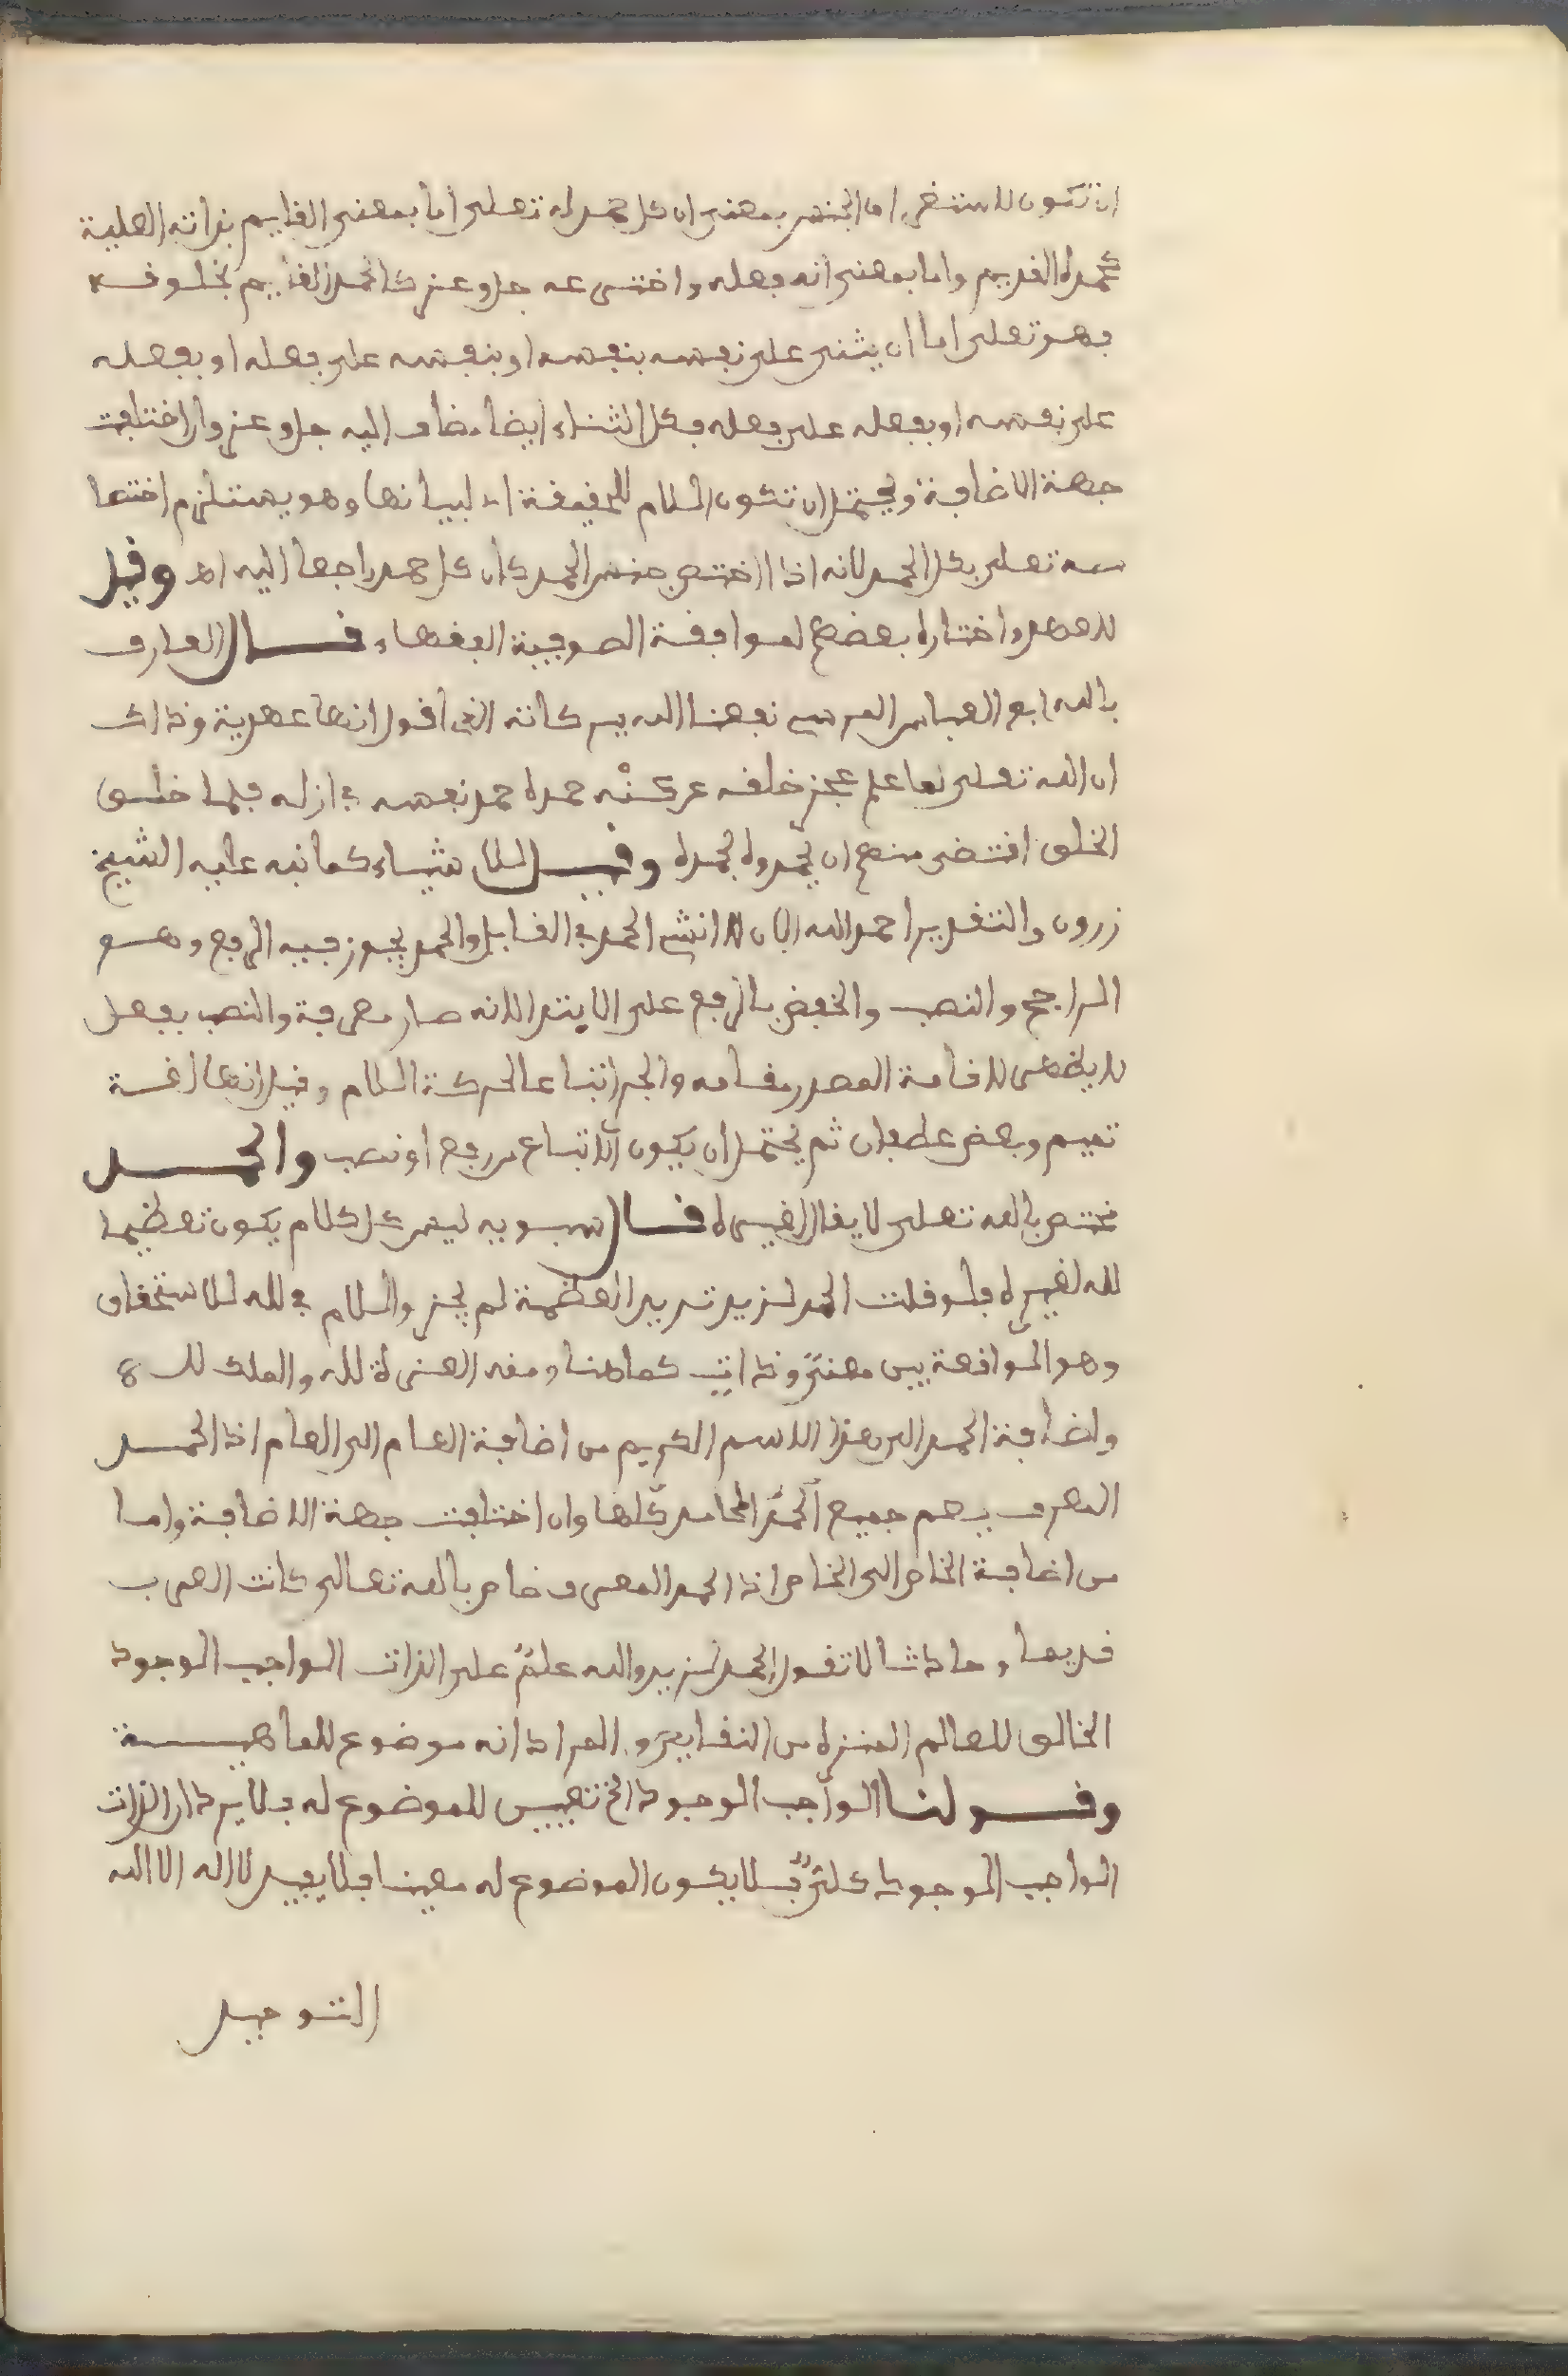 ان تكون للاستغراق الجنس بمعنى ان كل حمد له تعلى اما بمعنى القايم بذاته العلية
كحمده القديم واما بمعنى انه فعله واخترعه جل وعز كالحمد القايم بمخلوقـه
فهو تعلى اما ان يثنى على نفسه بنفسه او بنفسه على فعله او بفعله
على نفسه او بفعله على فعله فكل الثناء ايضا مضاف اليه جل وعز وان اختلفت
جهة الاضافة ويحتمل ان تكون اللام للحقيقة اي لبيانها وهو يستلزم اختصا
صه تعلى بكل الحمد لانه اذا اختص جنس الحمد كان كل حمد راجعا اليه اه وقيل
للعهد واختاره بعضهم لموافقة الصوفية الفقهاء قال العارف
بالله ابو العباس المرسي نفعنا الله ببركاته الذي اقول انها عهدية وذلك
ان الله تعلى لما علم عجز خلقه عن كنْه حمده حمد نفسه في ازله فلما خلق
الخلق اقتضى منهم ان يحمدوه بحمده وقيل للانشاء كما نبه عليه الشيخ
زروق والتقدير احمد الله الان لا انشئ الحمد في القابل والحمد يجوز فيه الرفع وهو
الراجح والنصب والخفض بالرفع على الابتدا لانه صار معرفة والنصب بفعل
لا يظهر لاقامة المصدر مقامه والجر اتباعا لحركة اللام وقيل انها لغة
تميم وبعض غطفان ثم يحتمل ان يكون الاتباع من رفع او نصب والحمد
مختص بالله تعلى لا يقال لغيره قال سبويه ليس كل كلام يكون تعظيما
لله لغيره فلو قلت الحمد لزيد تريد العظمة لم يجز واللام في لله للاستحقاق
وهو الواقعة بين معنًى وذات كما هنا ومنه العزة لله والملك لله
واضافة الحمد الى هذا الاسم الكريم من اضافة العام الى العام اذ الحمد
المعرف يعم جميع الحمد المحامد كلها وان اختلفت جهة الاضافة واما
من اضافة الخاص الى الخاص اذ الحمد المعرف خاص بالله تعالى كانت العرب
قديما وحادثا لا تقول الحمد لزيد والله علمٌ على الذات الواجب الوجود
الخالق للعالم المنزه من النقايص والمراد انه موضوع للماهيـــة
وقولنا الواجب الوجود الخ تعيين للموضوع له فلا يرد ان الذات
الواجب الوجود كليٌّ فلا يكون الموضوع له معينا فلا يفيد لا اله الا الله
التوحيد